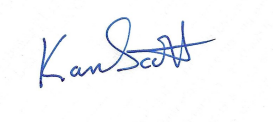 Kan Scott